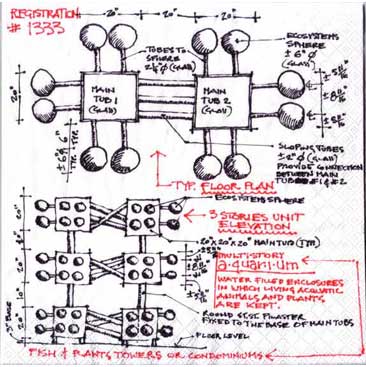 REGISTRATION:
# 1333
20"
20"
20"
ECOSYSTEMS
SPHERE
±6"Ø
(GLASS)
TUBES TO
SPHERE
2½"Ø (GLASS)
20"
MAIN
TUB 1
(GLASS)
MAIN
TUB 2
(GLASS)
SLOPING TUBES
±2"Ø (GLASS)
PROVIDE CONNECTION
BETWEEN MAIN
TUBS #1 & #2
TYP.
TYP. FLOOR PLAN
ECOSYSTEM SPHERE
3 STORIES UNIT
ELEVATION
20"x20"x20" MAIN TUB (TYP)
MULTI-STORY
a·quar·i·um
WATER FILLED ENCLOSURES
IN WHICH LIVING ACQUATIC
ANIMALS AND PLANTS
ARE KEPT.
20"
20"
20"
3" BASE
ROUND ST.ST. PILASTER
FIXED TO THE BASE OF MAIN TUBS
FLOOR LEVEL
FISH & PLANTS TOWERS OR CONDOMINIUMS